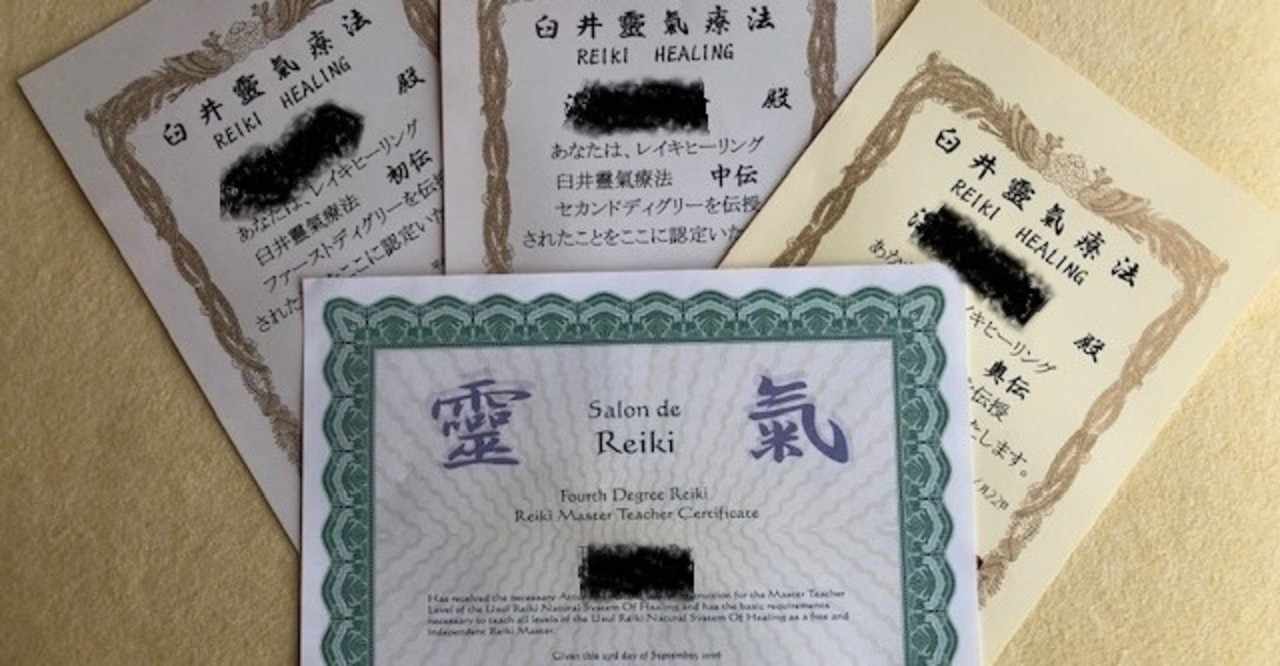 臼井靈氣療法
REIKI HEALING
殿
あなたは、レイキヒーリング
臼井靈氣療法 初伝
ファーストディグリーを伝
された ここに認定い
臼井靈氣療法
REIKI HEALING
殿
あなたは、レイキヒーリング
臼井靈氣療法 中伝
セカンドディグリーを伝授
されたことをここに認定いた
臼井靈氣療法
REIKI HEALING
殿
あな イキヒーリング
奥伝
伝授
たします。
靈 氣
Salon de
Reiki
Fourth Degree Reiki
Reiki Master Teacher Certificate
Has received the necessary for the Master Teacher
Level of the Usui Reiki Natural System Of Healing and has the basic requirements
necessary to teach all levels of the Usui Reiki Natural System Of Healing as a free and
independent Reiki Master.
Given this day of September